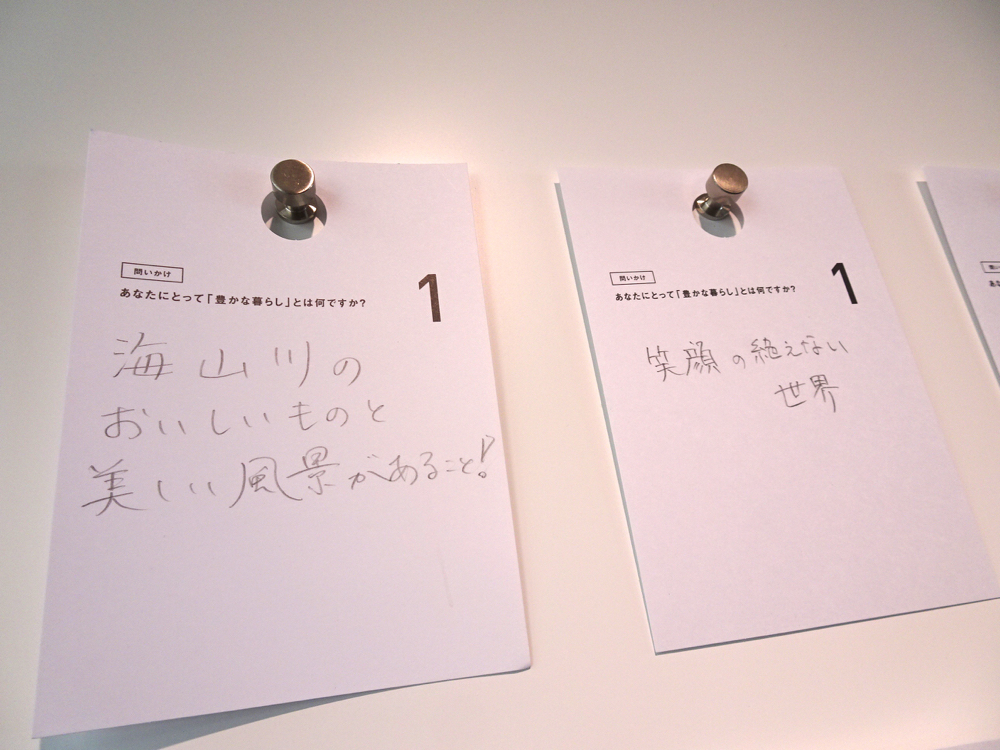 問いかけ
あなたにとって「豊かな暮らし」とは何ですか?
1
海山川の
おいしいものと
美しい風景があること!
問いかけ
あなたにとって「豊かな暮らし」とは何ですか?
1
笑顔の絶えない
世界